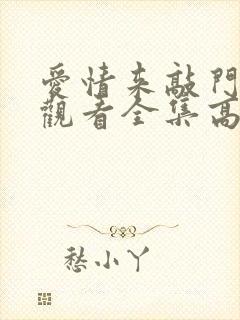 愛情來敲門
觀看全集高
愁小丫